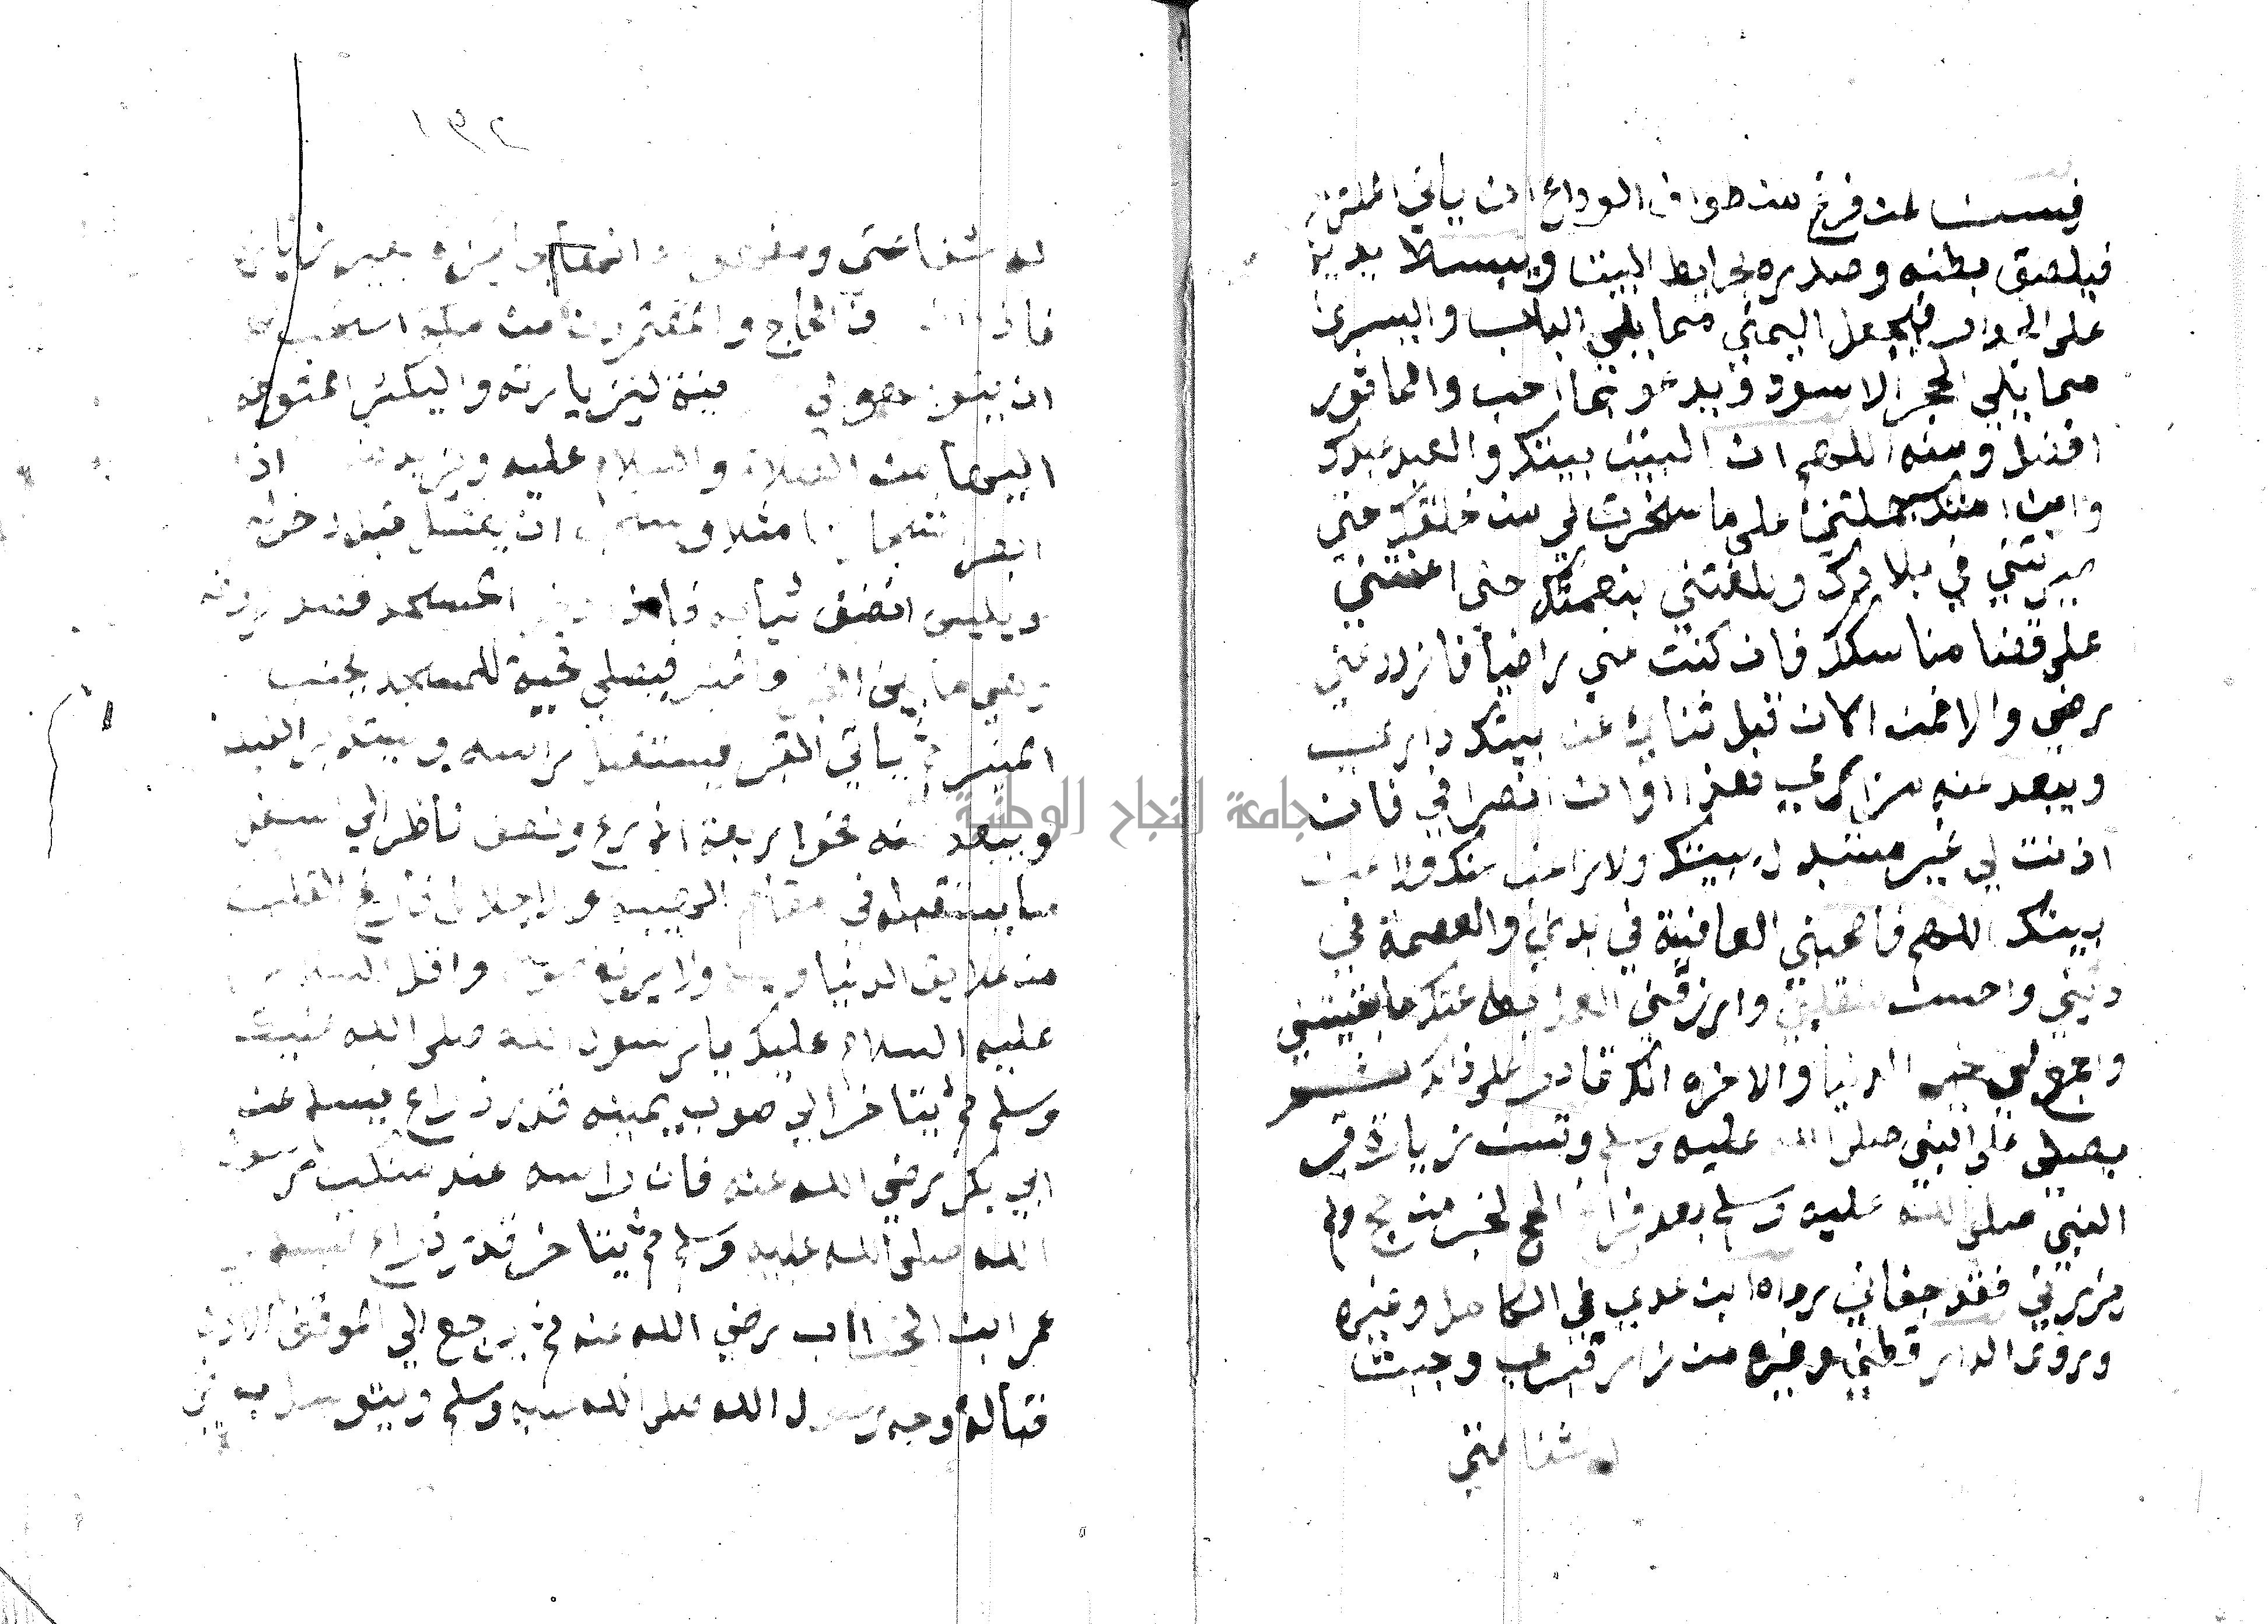 فيسن لمن فرغ من طواف الوداع ان ياتي الملتزم
فيلصق بطنه وصدره بحايط البيت ويبسط يديه
على الجدار فيجعل اليمنى مما يلي الباب واليسرى
مما يلي الحجر الاسود ويدعو بما احب والماثور
افضل ومنه اللهم ان البيت بيتك والعبد عبدك
وابن امتك حملتني على ما سخرت لي من خلقك حتى
سيرتني في بلادك وبلغتني بنعمتك حتى اعنتني
على قضا مناسكك فان كنت عني راضيا فازدد عني
رضى والا فمن الان قبل تناي عن بيتك داري
ويبعد عنه مزاري فهذا اوان انصرافي فان
اذنت لي غير مستبدل ببيتك ولا راغب عنك ولا عن
بيتك اللهم فاصحبني العافية في بدني والعصمة في
ديني واحسن منقلبي وارزقني طاعتك ما ابقيتني
واجمع لي خير الدنيا والاخره انك قادر على ذلك ثم
يصلي على النبي صلى الله عليه وسلم وتسن زيارة قبر
النبي صلى الله عليه وسلم بعد فراغ الحج لخبر من حج ولم
يزرني فقد جفاني رواه ابن عدي في الكامل وغيره
وروى الدارقطني وغيره من زار قبري وجبت
له شفاعتي
١٩٢
له شفاعتي بغير زيارته
فاذا الحاج والمعتمرون من مكه استحب
ان لزيارته وليكثر المتوجه
اليها من الصلاة والسلام عليه ويزيد اذا
ابصر مثلا ان يغتسل قبل دخوله
ويلبس انضف ثيابه فاذا المسجد قصد الروضه
وهي ما بين القبر والمنبر فيصلي تحية المسجد بجنب
المنبر ثم ياتي القبر فيستقبل راسه ويستدبر القبلة
ويبعد عنه نحو اربعة اذرع ويقف ناظرا الى اسفل
ما يستقبله في مقام الهيبه والاجلال فارغ القلب
من علايق الدنيا ولا يرفع صوته واقل السلام
عليه السلام عليك يا رسول الله صلى الله عليك
وسلم ثم يتاخر الى صوب يمينه قدر ذراع يسلم على
ابي بكر رضي الله عنه فان راسه عند منكب رسول
الله صلى الله عليه وسلم ثم يتاخر قدر ذراع فيسلم على
عمر ابن الخطاب رضي الله عنه ثم يرجع الى موقفه الاول
قبالة وجه رسول الله صلى الله عليه وسلم ويتوسل به في
جامعة النجاح الوطنية